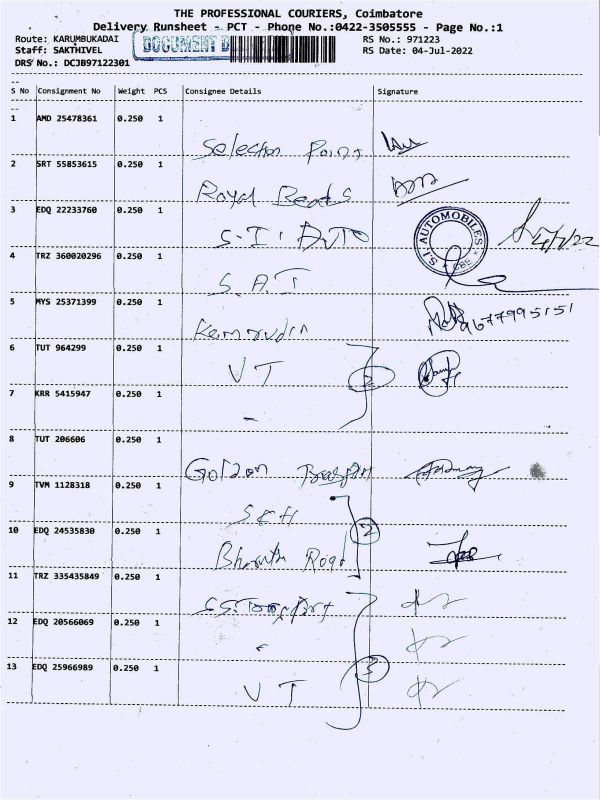 THE PROFESSIONAL COURIERS, Coimbatore
Delivery Runsheet - PCT - Phone No.:0422-3505555 - Page No.:1
Route: KARUMBUKADAI DOCUMENT D RS No.: 971223
Staff: SAKTHIVEL RS Date: 04-Jul-2022
DRS No.: DCJB97122301
S No Consignment No Weight PCS Consignee Details Signature
1 AMD 25478361 0.250 1
Selection Point
2 SRT 55853615 0.250 1
Royal Beads
3 EDQ 22233760 0.250 1
S.I. AUTO S.I. AUTOMOBILES 4/7/22
4 TRZ 360020296 0.250 1
S.A.T
5 MYS 25371399 0.250 1
Kamrudin 9677995151
6 TUT 964299 0.250 1
VT 2
7 KRR 5415947 0.250 1
8 TUT 206606 0.250 1
Golden
9 TVM 1128318 0.250 1
10 EDQ 24535830 0.250 1
2
Road
11 TRZ 335435849 0.250 1
12 EDQ 20566069 0.250 1
13 EDQ 25966989 0.250 1
3
VT